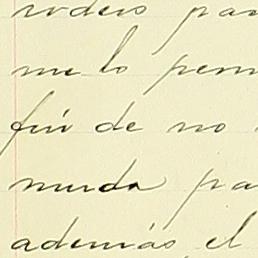 rodeo par
me lo perm
fin de no
muda pa
además, el